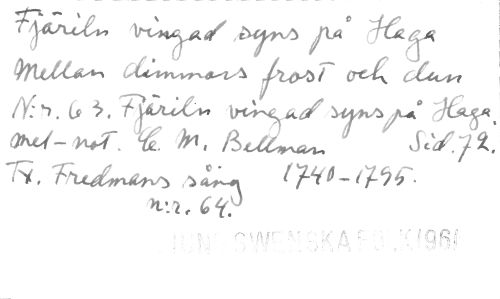 Fjäriln vingad syns på Haga
mellan dimmors frost och dun
N:r. 63. Fjäriln vingad syns på Haga.
met-not. C. M. Bellman Sid. 72.
Tx. Fredmans sång 1740-1795.
n:r. 64.
SWENSKA